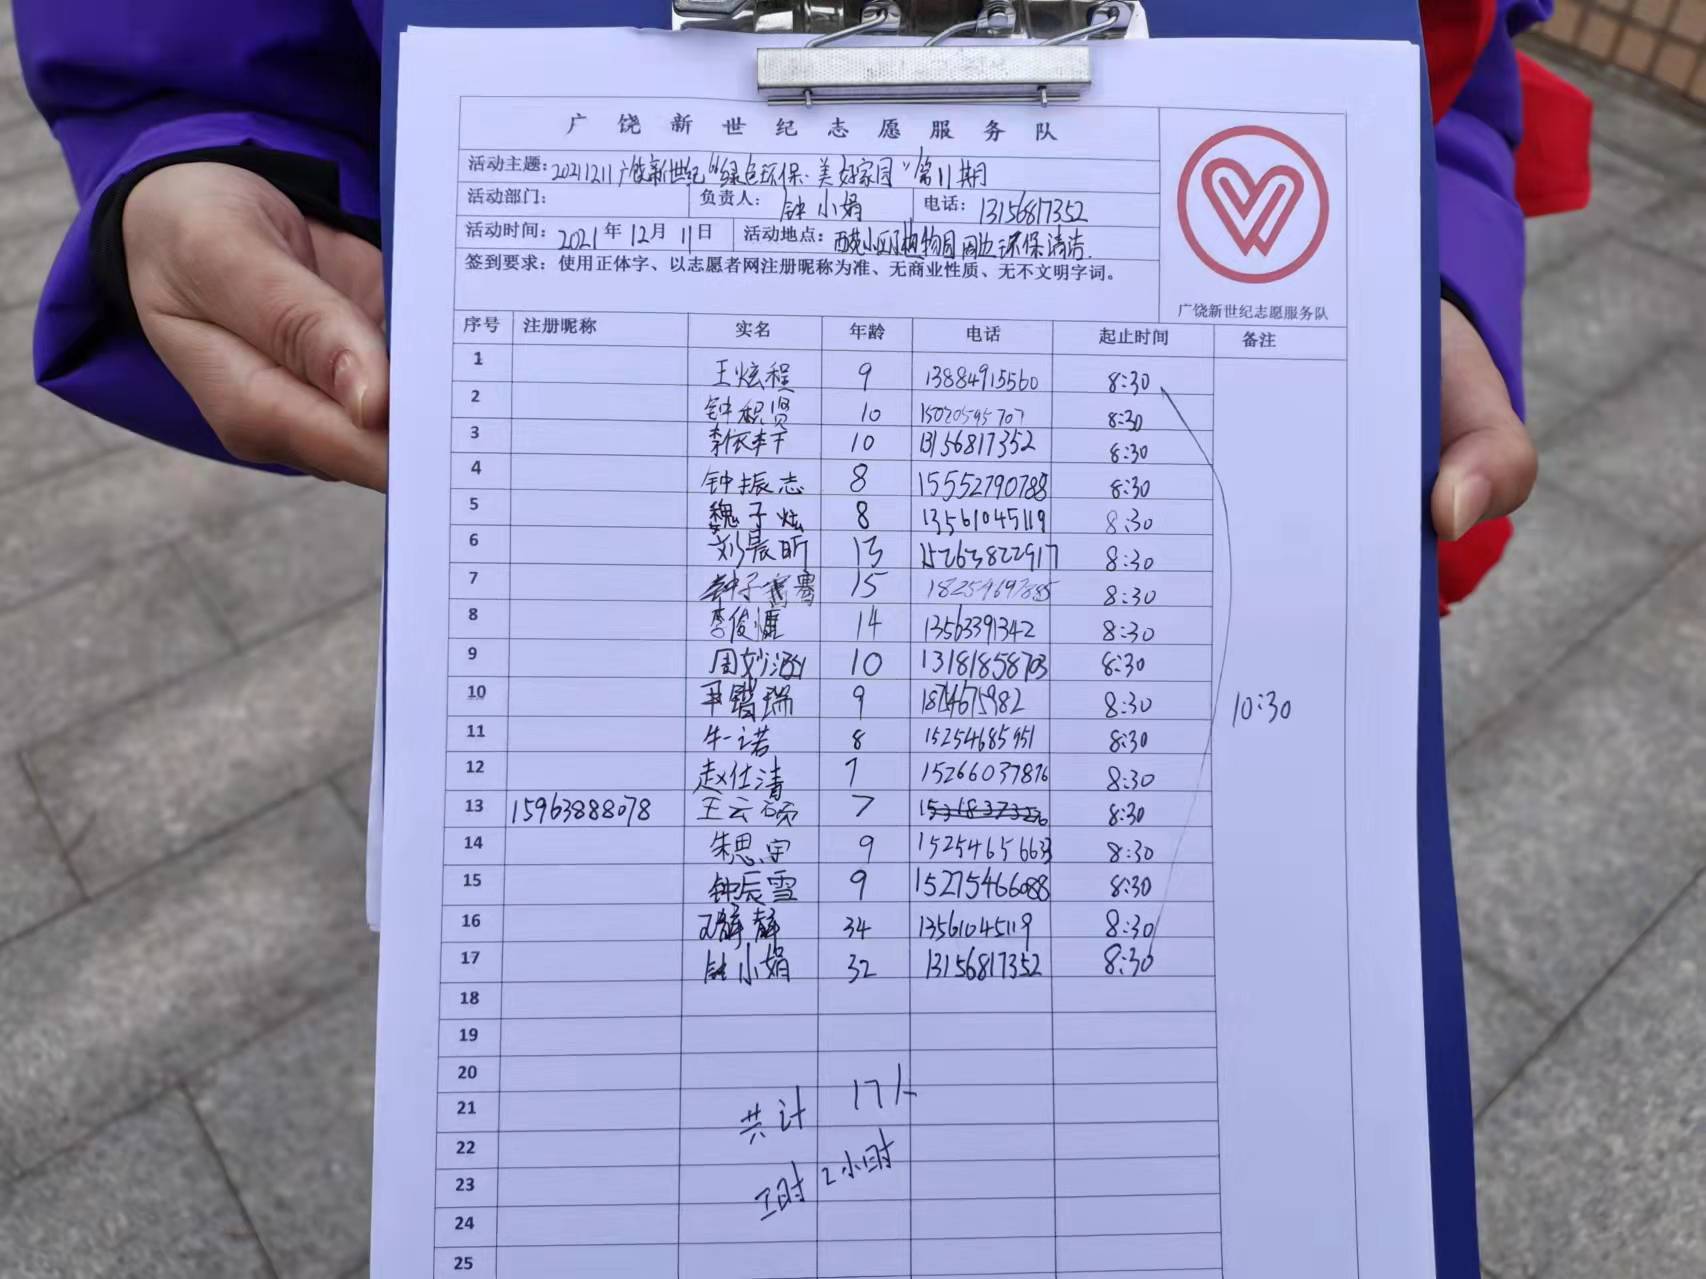 广饶新世纪志愿服务队
活动主题：20211211广饶新世纪“绿色环保·美好家园”第11期
活动部门： 负责人：钟小娟 电话：13156817352
活动时间：2021年12月11日 活动地点：西苑小区植物园周边环保清洁.
签到要求：使用正体字、以志愿者网注册昵称为准、无商业性质、无不文明字词。
广饶新世纪志愿服务队
序号 注册昵称 实名 年龄 电话 起止时间 备注
1 王炫程 9 13884915560 8:30
2 10 15020595707 8:30
3 10 13156817352 8:30
4 钟振志 8 15552790788 8:30
5 魏子炫 8 13561045119 8:30
6 刘晨昕 13 15263822917 8:30
7 15 8:30
8 李俊 14 13563391342 8:30
9 周妙涵 10 13181858703 8:30
10 瑞 9 8:30
10:30
11 牛一诺 8 15254685951 8:30
12 赵仕清 7 15266037876 8:30
13 15963888078 王云硕 7 8:30
14 朱思宇 9 15254656633 8:30
15 钟辰雪 9 15275466088 8:30
16 邓静静 34 13561045119 8:30
17 钟小娟 32 13156817352 8:30
18
19
20
21
共计 17人
22
23
工时 2小时
24
25